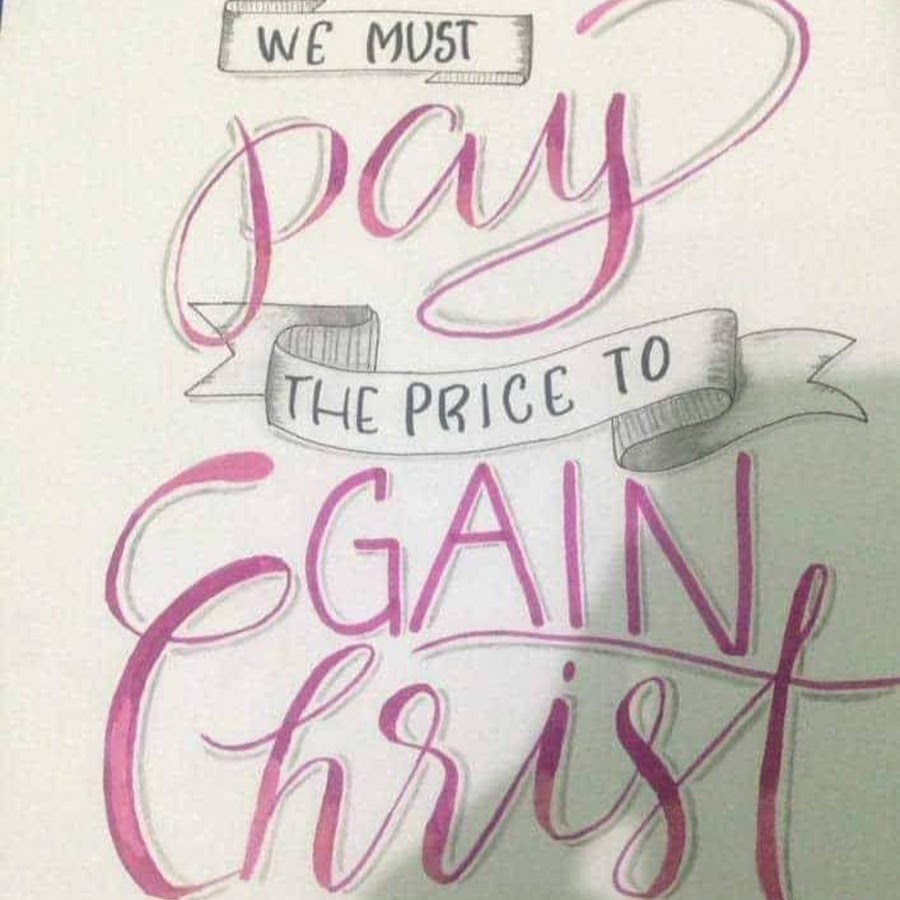 WE MUST
pay
THE PRICE TO
GAIN
Christ